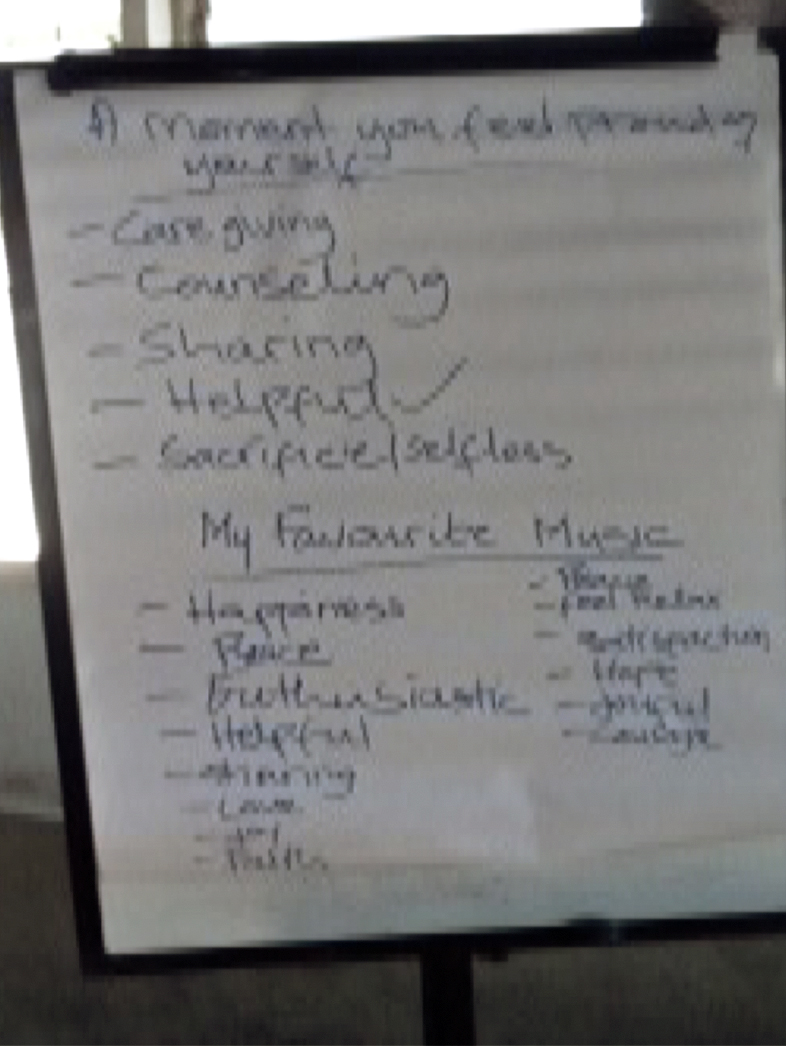 A) Moment you feel proud of
yourself
- Care giving
- Counseling
- Sharing
- Helpful ✓
- Sacrificie/selfless
My Favourite Music
- Happiness
- Peace
- Enthusiastic
- Helpful
- Sharing
- Love
- Joy
- Faith
- Feel Relax
- satisfaction
- Hope
- Joyful
- Courage